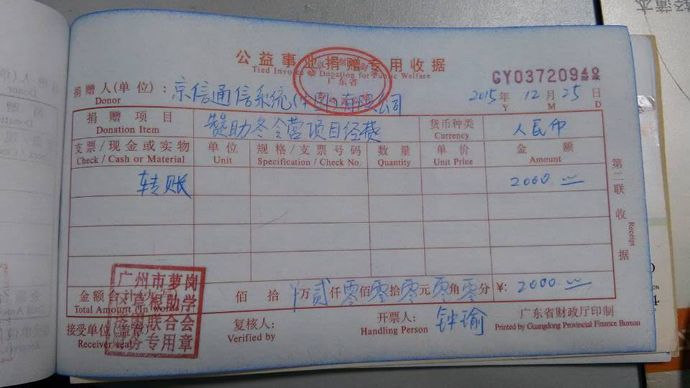 公益事业捐赠专用收据
Tied Invoice of Donation for Public Welfare
广东省
GY03720942
捐赠人(单位): 京信通信系统(中国)有限公司
Donor
2015年12月25日
Y M D
捐赠项目 赞助冬令营项目经费 货币种类 人民币
Donation Item Currency
支票/现金或实物 单位 规格/支票号码 数量 单价 金额
Check / Cash or Material Unit Specification / Check No. Quantity Unit Price Amount
转账 2000.00
第二联 收据
Receipt
金额合计 佰 拾 万贰仟零佰零拾零元零角零分 ¥: 2000.00
Total Amount
广州市萝岗
助学
联合会
专用章
接受单位 复核人: 开票人: 钟瑜 广东省财政厅印制
Receiver Verified by Handling Person Printed by Guangdong Provincial Finance Bureau